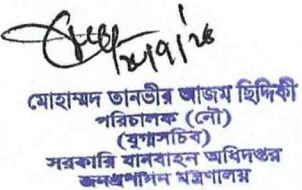 মোহাম্মদ তানভীর আজম ছিদ্দিকী
পরিচালক (নৌ)
(যুগ্মসচিব)
সরকারি যানবাহন অধিদপ্তর
জনপ্রশাসন মন্ত্রণালয়